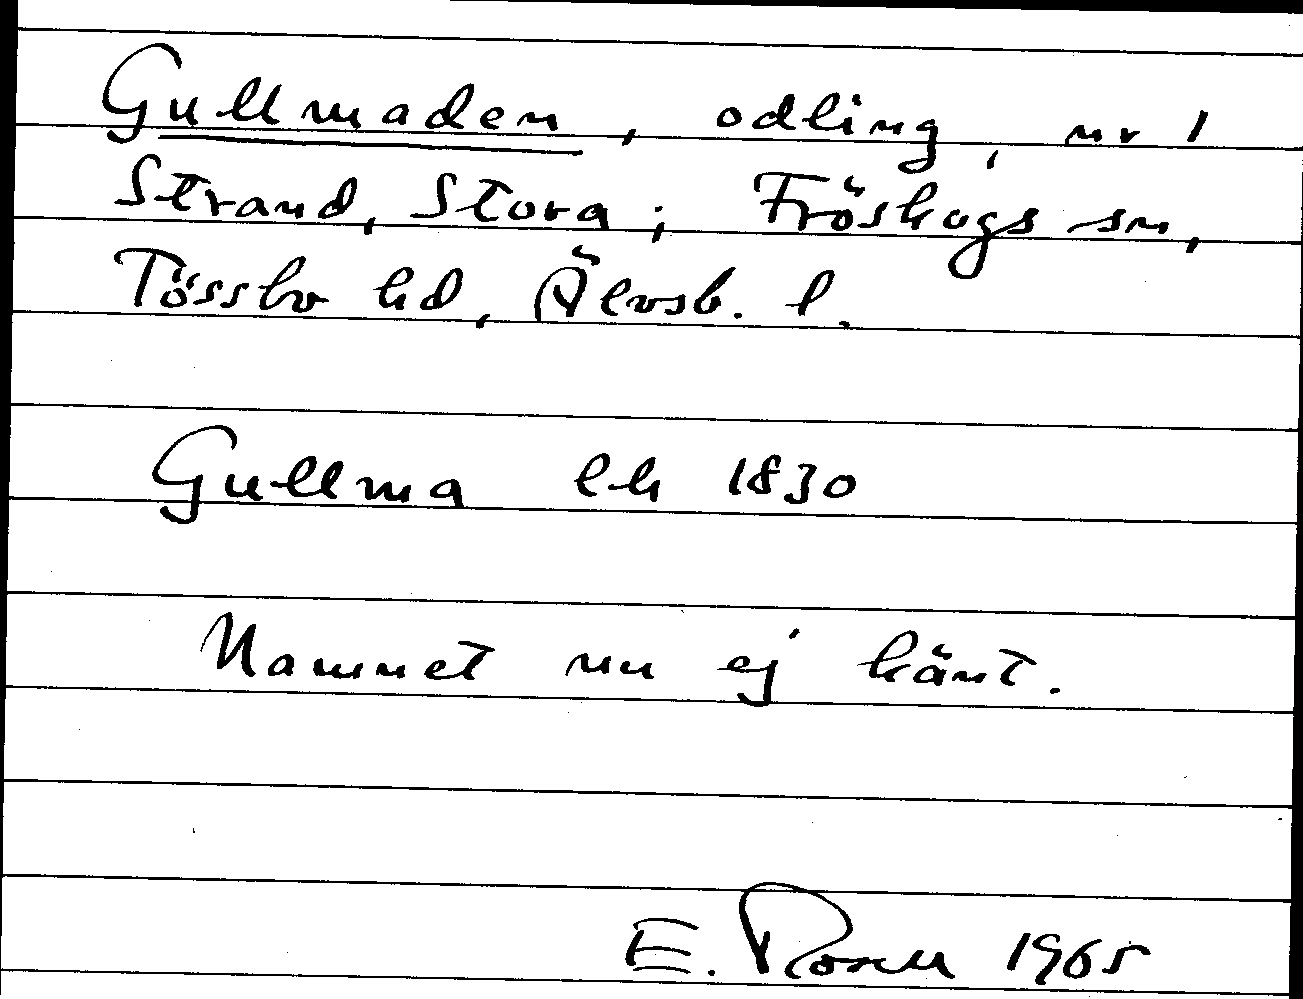 Gullmaden, odling, nr 1
Strand, Stora; Fröskogs sn,
Tössbo hd, Älvsb. l.
Gullma lh 1830
Namnet nu ej känt.
E. Rosen 1965